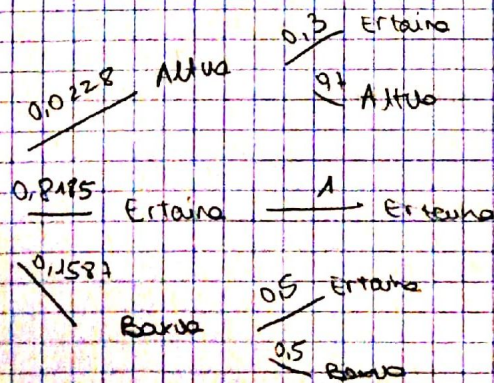 0,3 Ertaina
0,0228 Altua
0,7 Altua
0,8185 Ertaina 1 Ertaina
0,1587 Baxua
0,5 Ertaina
0,5 Baxua